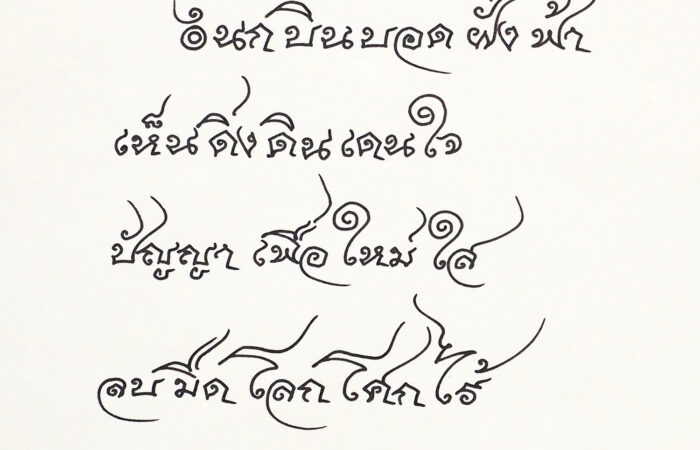 ๏ นก บิน บอด ฝั่ง ฟ้า
เห็น ดิ่ง ดิน เดน ใจ
ปัญญา เพื่อ ใหม่ ใส
ลบ มืด โลก โศก ไร้